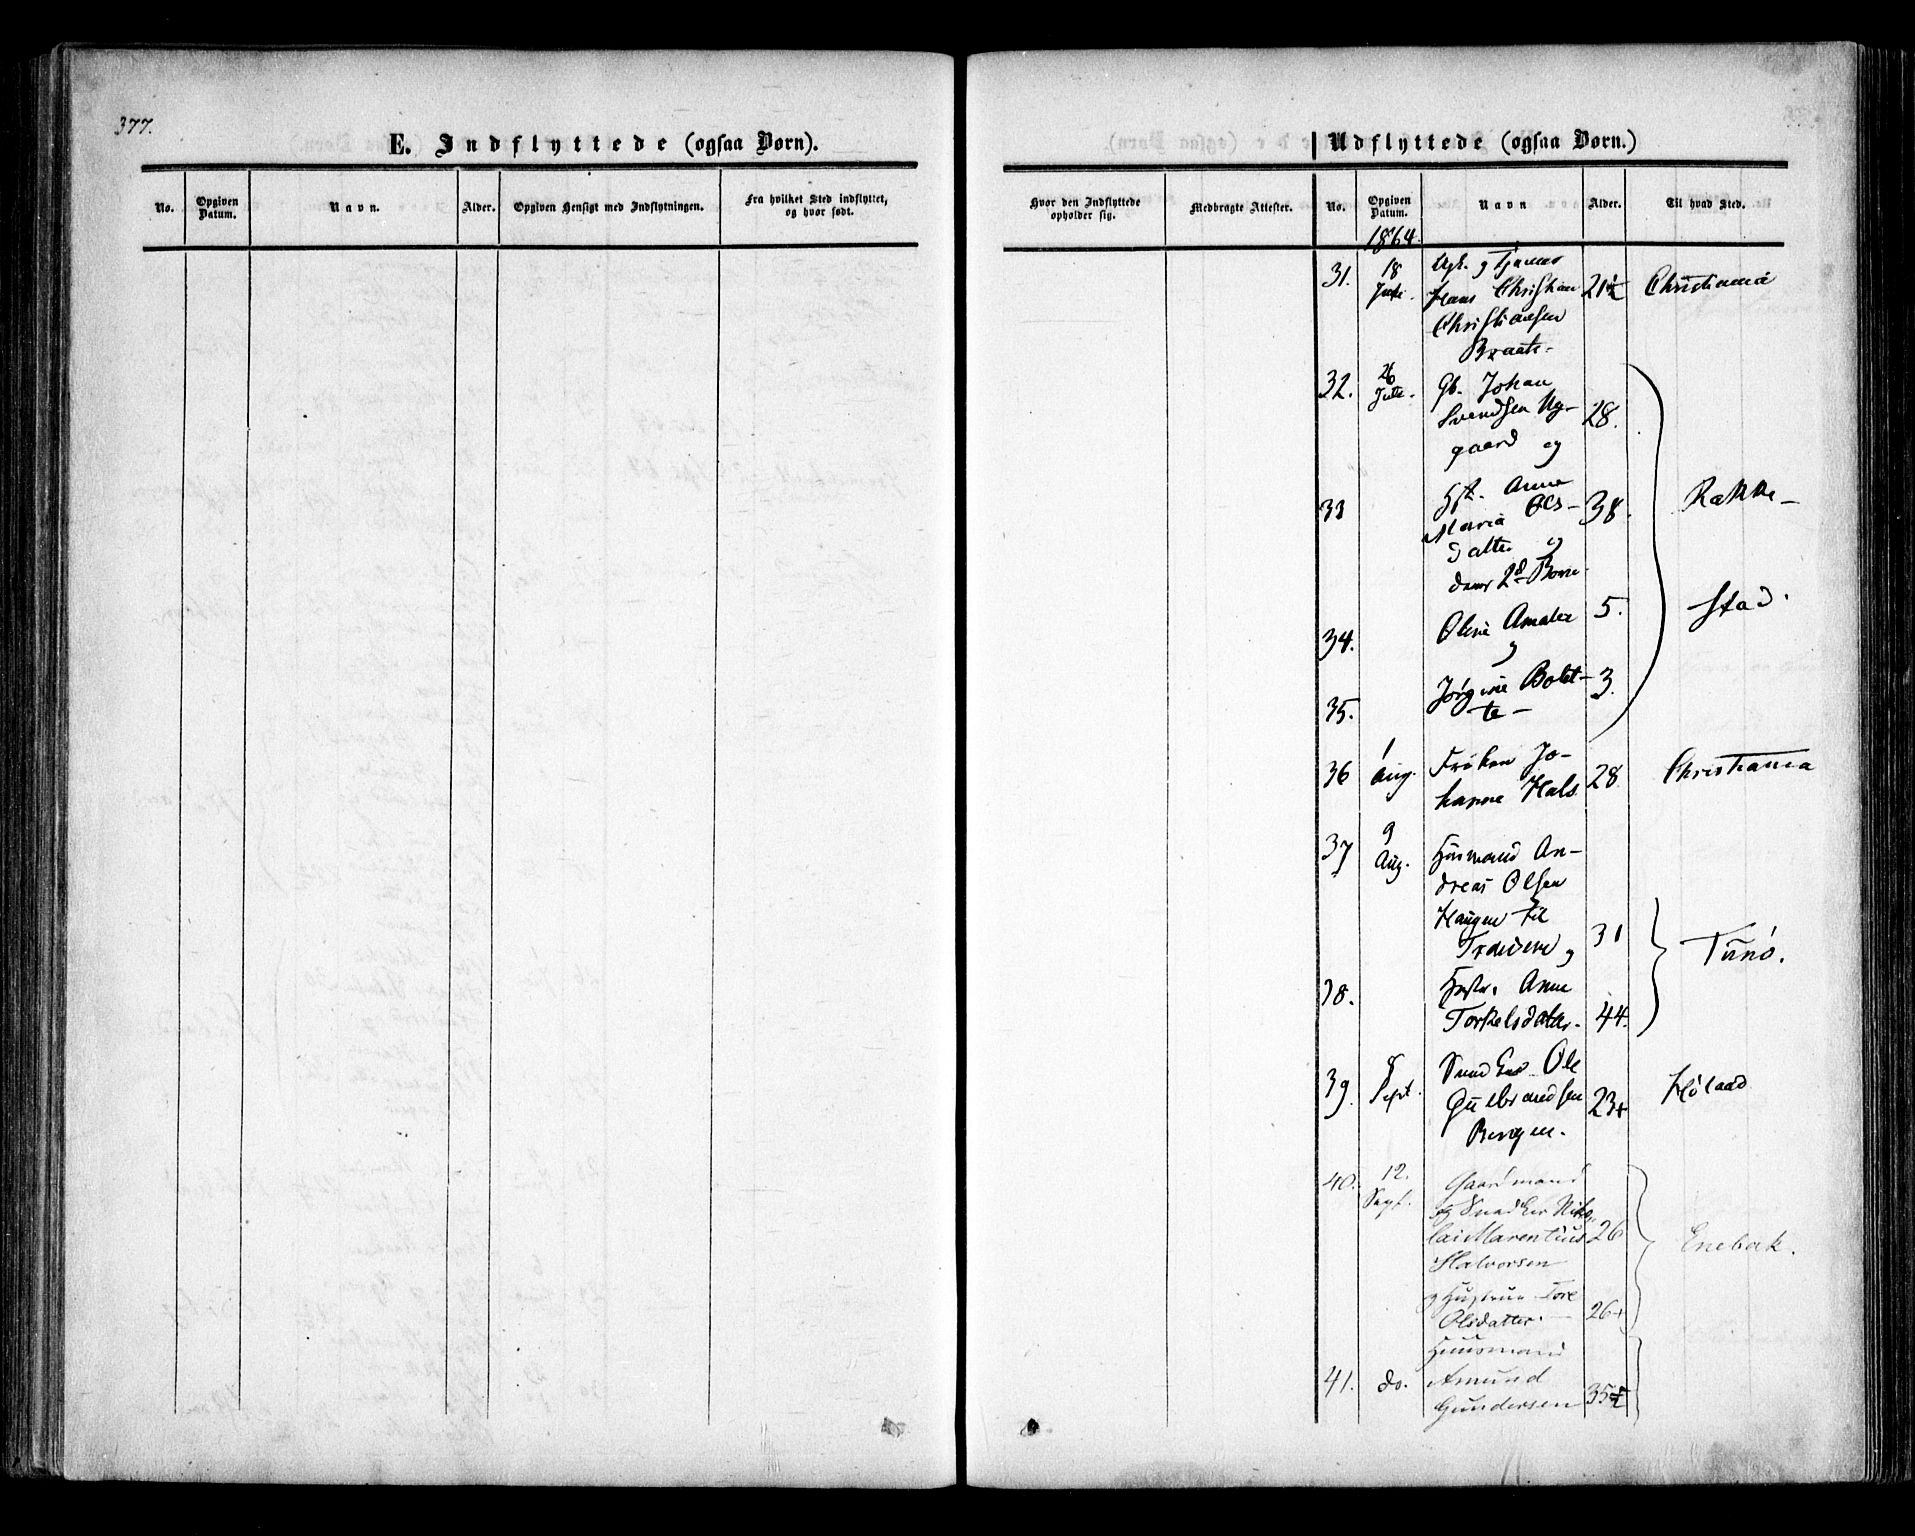 377.
E. Indflyttede (ogsaa Børn).
No.
Opgiven Datum.
Navn.
Alder.
Opgiven Hensigt med Indflytningen.
Fra hvilket Sted indflyttet, og hvor født.
Udflyttede (ogsaa Børn.)
Hvor den Indflyttede opholder sig.
Medbragte Attester.
No.
Opgiven Datum.
Navn
Alder.
Til hvad Sted.
1864.
31. 18 Ugk. og
Hans Christian 21½ Christiania
Christiansen
Braate.
32. 26 Gb. Johan
Svendsen Ny- 28.
gaard og
33 Hst. Anne
Maria Ols- 38. Rakke-
datter og
deres 2de Børn
34. Oline Amalie 5. stad.
og
35. Jørgine Bolet- 3.
te -
36 1 Aug. Frøken Jo-
hanne Hals 28 Christiania
37 9 Aug. Husmand An-
dreas Olsen
Haugen til
og 31 Tunø.
38. Hustr. Anne
Torkelsdatter. 44.
39. 8 Sept. Ole
Gulbrandsen 23+ Høland
Bergen.
40. 12. Sept. Gaardmand
og Snedker Niko-
lai Marentius 26 Enebak.
Halvorsen
og Hustrue Tore
Olsdatter. 26+
Huusmand
41. do. Amund
Gundersen 35½